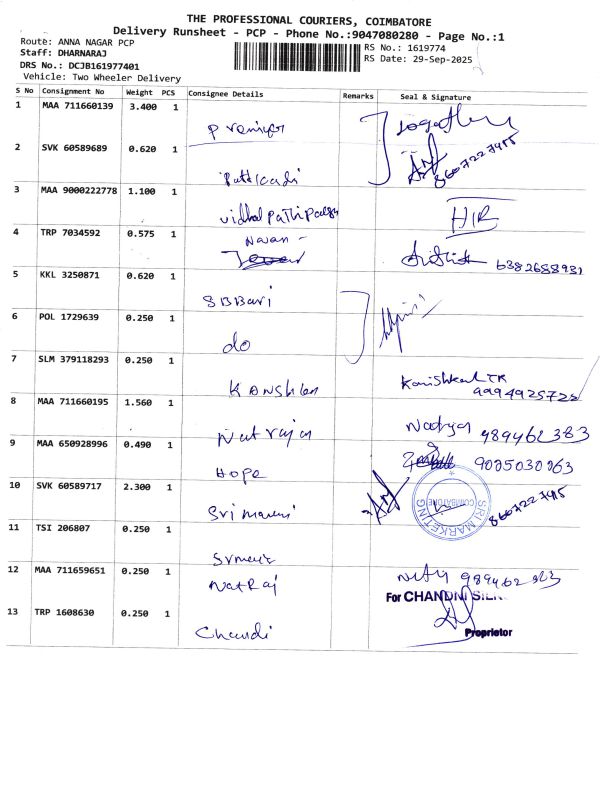 THE PROFESSIONAL COURIERS, COIMBATORE
Delivery Runsheet - PCP - Phone No.:9047080280 - Page No.:1
Route: ANNA NAGAR PCP
Staff: DHARNARAJ
DRS No.: DCJB161977401
Vehicle: Two Wheeler Delivery
RS No.: 1619774
RS Date: 29-Sep-2025
S No Consignment No Weight PCS Consignee Details Remarks Seal & Signature
1 MAA 711660139 3.400 1
2 SVK 60589689 0.620 1
8607227415
3 MAA 9000222778 1.100 1
HIR
4 TRP 7034592 0.575 1
Navan
6382688931
5 KKL 3250871 0.620 1
SBBavi
6 POL 1729639 0.250 1
do
7 SLM 379118293 0.250 1
9994925728
8 MAA 711660195 1.560 1
Natrajan
989462383
9 MAA 650928996 0.490 1
Hope
9025030963
10 SVK 60589717 2.300 1
Sri
SRI MARKETING
COIMBATORE
8607227415
11 TSI 206807 0.250 1
12 MAA 711659651 0.250 1
NatRaj
For CHANDNI SILK
13 TRP 1608630 0.250 1
Chandi
Proprietor